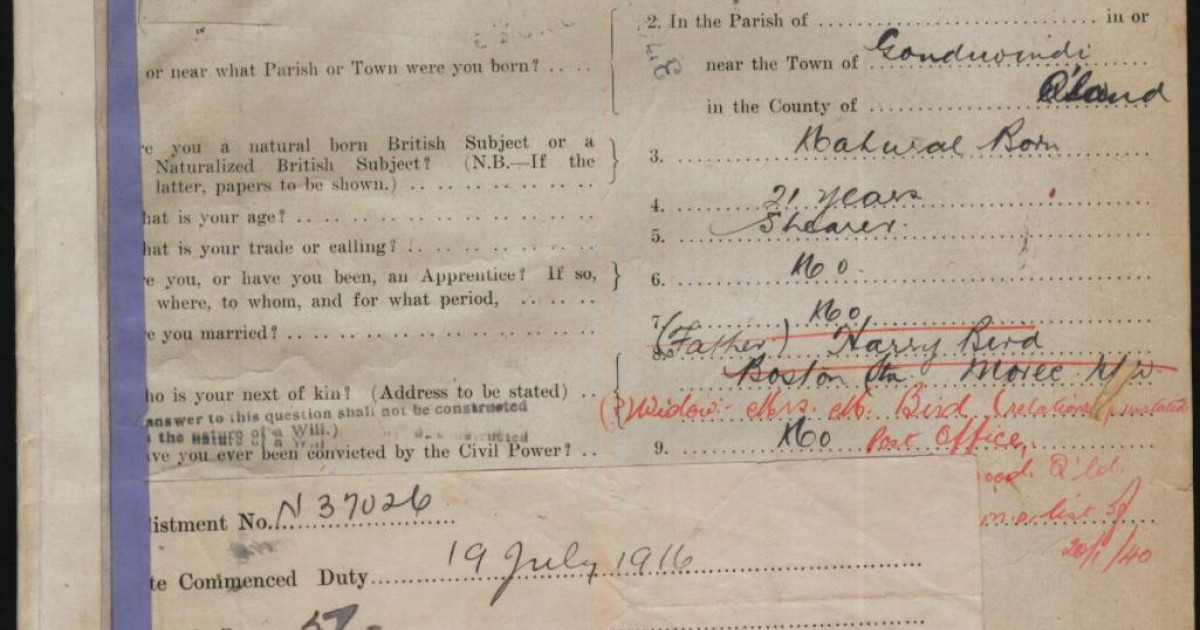 2. In the Parish of in or
or near what Parish or Town were you born?
near the Town of Gondiwindi
in the County of Q'land
e you a natural born British Subject or a
Naturalized British Subject? (N.B.—If the
latter, papers to be shown.)
3. Natural Born
hat is your age?
4. 21 years
hat is your trade or calling?
5. Shearer.
e you, or have you been, an Apprentice? If so,
where, to whom, and for what period,
6. No.
e you married?
7. No
8. (Father) Harry Bird
Boston Stn Moree N/W
ho is your next of kin? (Address to be stated)
answer to this question shall not be constructed
the nature of a Will.)
(?) Widow - Mrs. M. Bird (relationship unstated
ve you ever been convicted by the Civil Power?
9. No
Post Office,
ood. Q'ld.
list
20/1/40
istment No. N37026
te Commenced Duty 19 July 1916